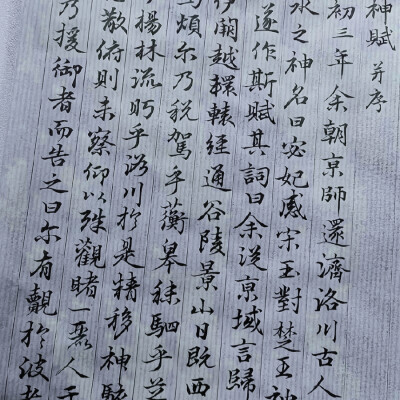 神賦 并序
初三年余朝京師還濟洛川古人
水之神名曰宓妃感宋玉對楚王神
遂作斯賦其詞曰余從京域言歸
伊闕越轘轅經通谷陵景山日既西
馬煩尔乃稅駕乎蘅皋秣駟乎芝
乎楊林流眄乎洛川於是精移神駭
散俯則未察仰以殊觀睹一麗人于
乃援御者而告之曰尔有覿於彼者